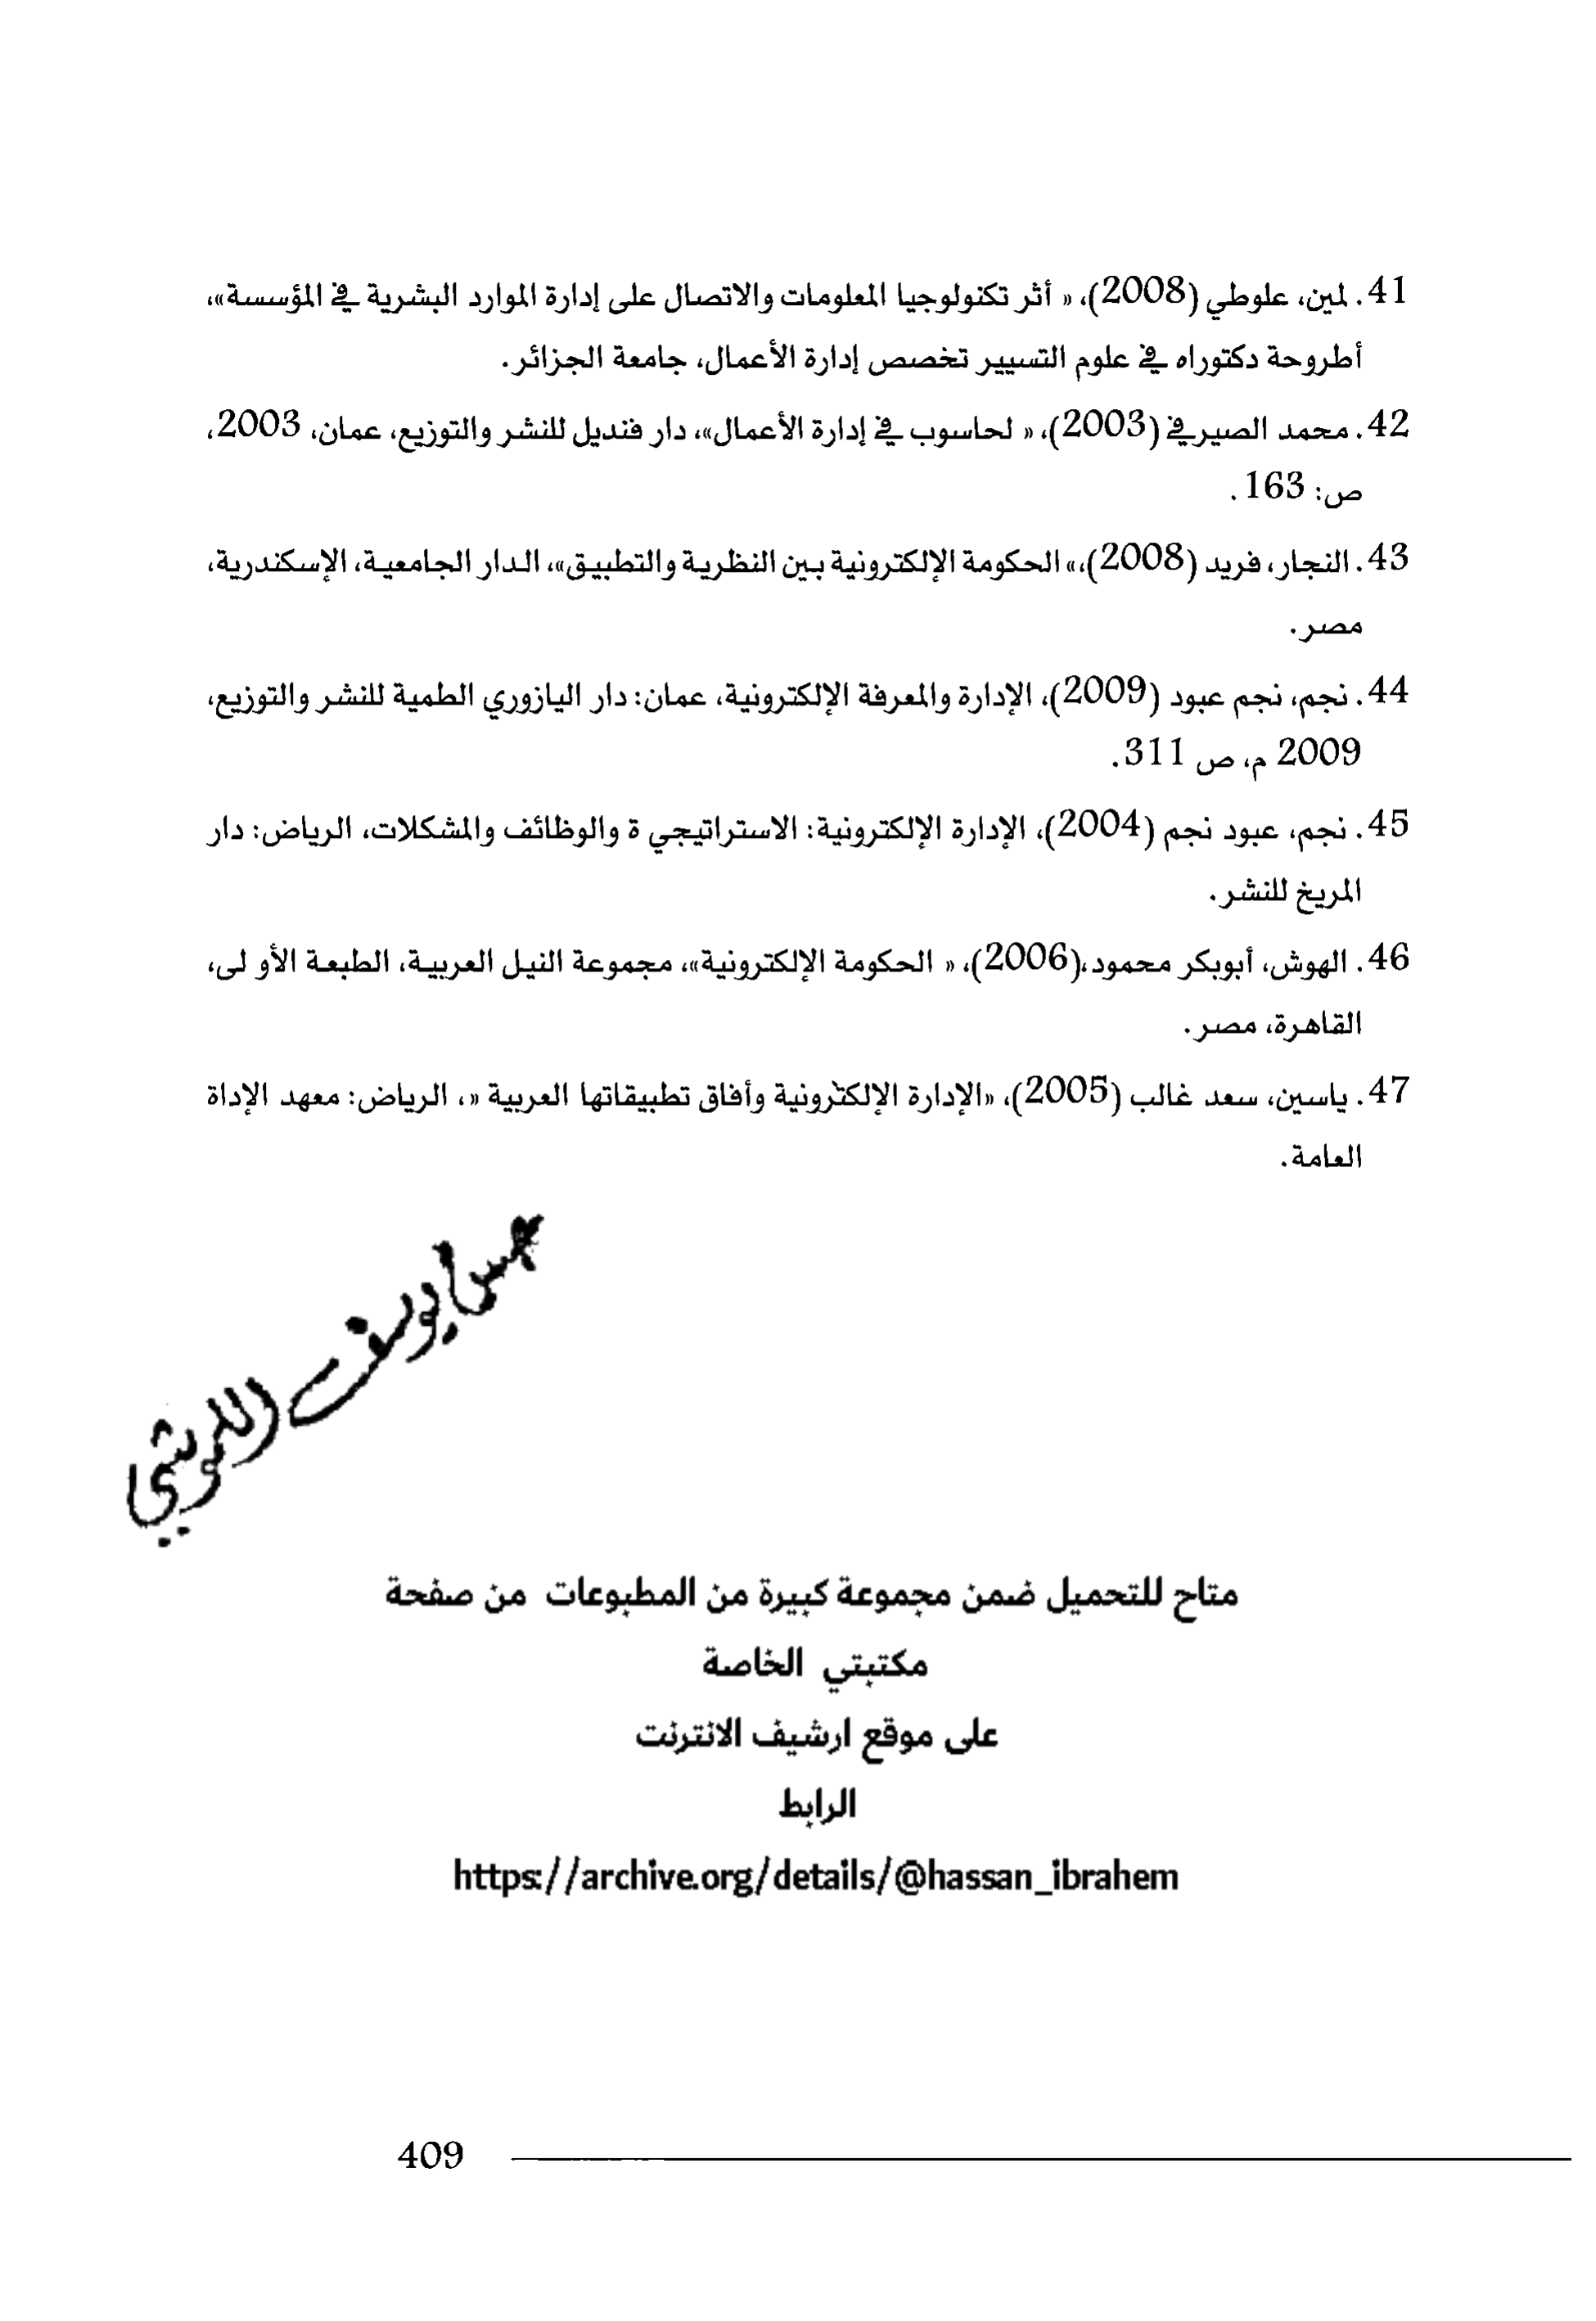 41. لمين، علوطي (2008)، « أثر تكنولوجيا المعلومات والاتصال على إدارة الموارد البشرية في المؤسسة»،
أطروحة دكتوراه في علوم التسيير تخصص إدارة الأعمال، جامعة الجزائر.
42. محمد الصيرفي (2003)، « لحاسوب في إدارة الأعمال»، دار فنديل للنشر والتوزيع، عمان، 2003،
ص: 163 .
43. النجار، فريد (2008)،» الحكومة الإلكترونية بين النظرية والتطبيق»، الدار الجامعية، الإسكندرية،
مصر.
44. نجم، نجم عبود (2009)، الإدارة والمعرفة الإلكترونية، عمان: دار اليازوري الطمية للنشر والتوزيع،
2009 م، ص 311.
45. نجم، عبود نجم (2004)، الإدارة الإلكترونية: الاستراتيجي ة والوظائف والمشكلات، الرياض: دار
المريخ للنشر.
46. الهوش، أبوبكر محمود،(2006)، « الحكومة الإلكترونية»، مجموعة النيل العربية، الطبعة الأو لى،
القاهرة، مصر.
47. ياسين، سعد غالب (2005)، «الإدارة الإلكترونية وأفاق تطبيقاتها العربية «، الرياض: معهد الإداة
العامة.
يوسف
متاح للتحميل ضمن مجموعة كبيرة من المطبوعات من صفحة
مكتبتي الخاصة
على موقع ارشيف الانترنت
الرابط
https://archive.org/details/@hassan_ibrahem
409